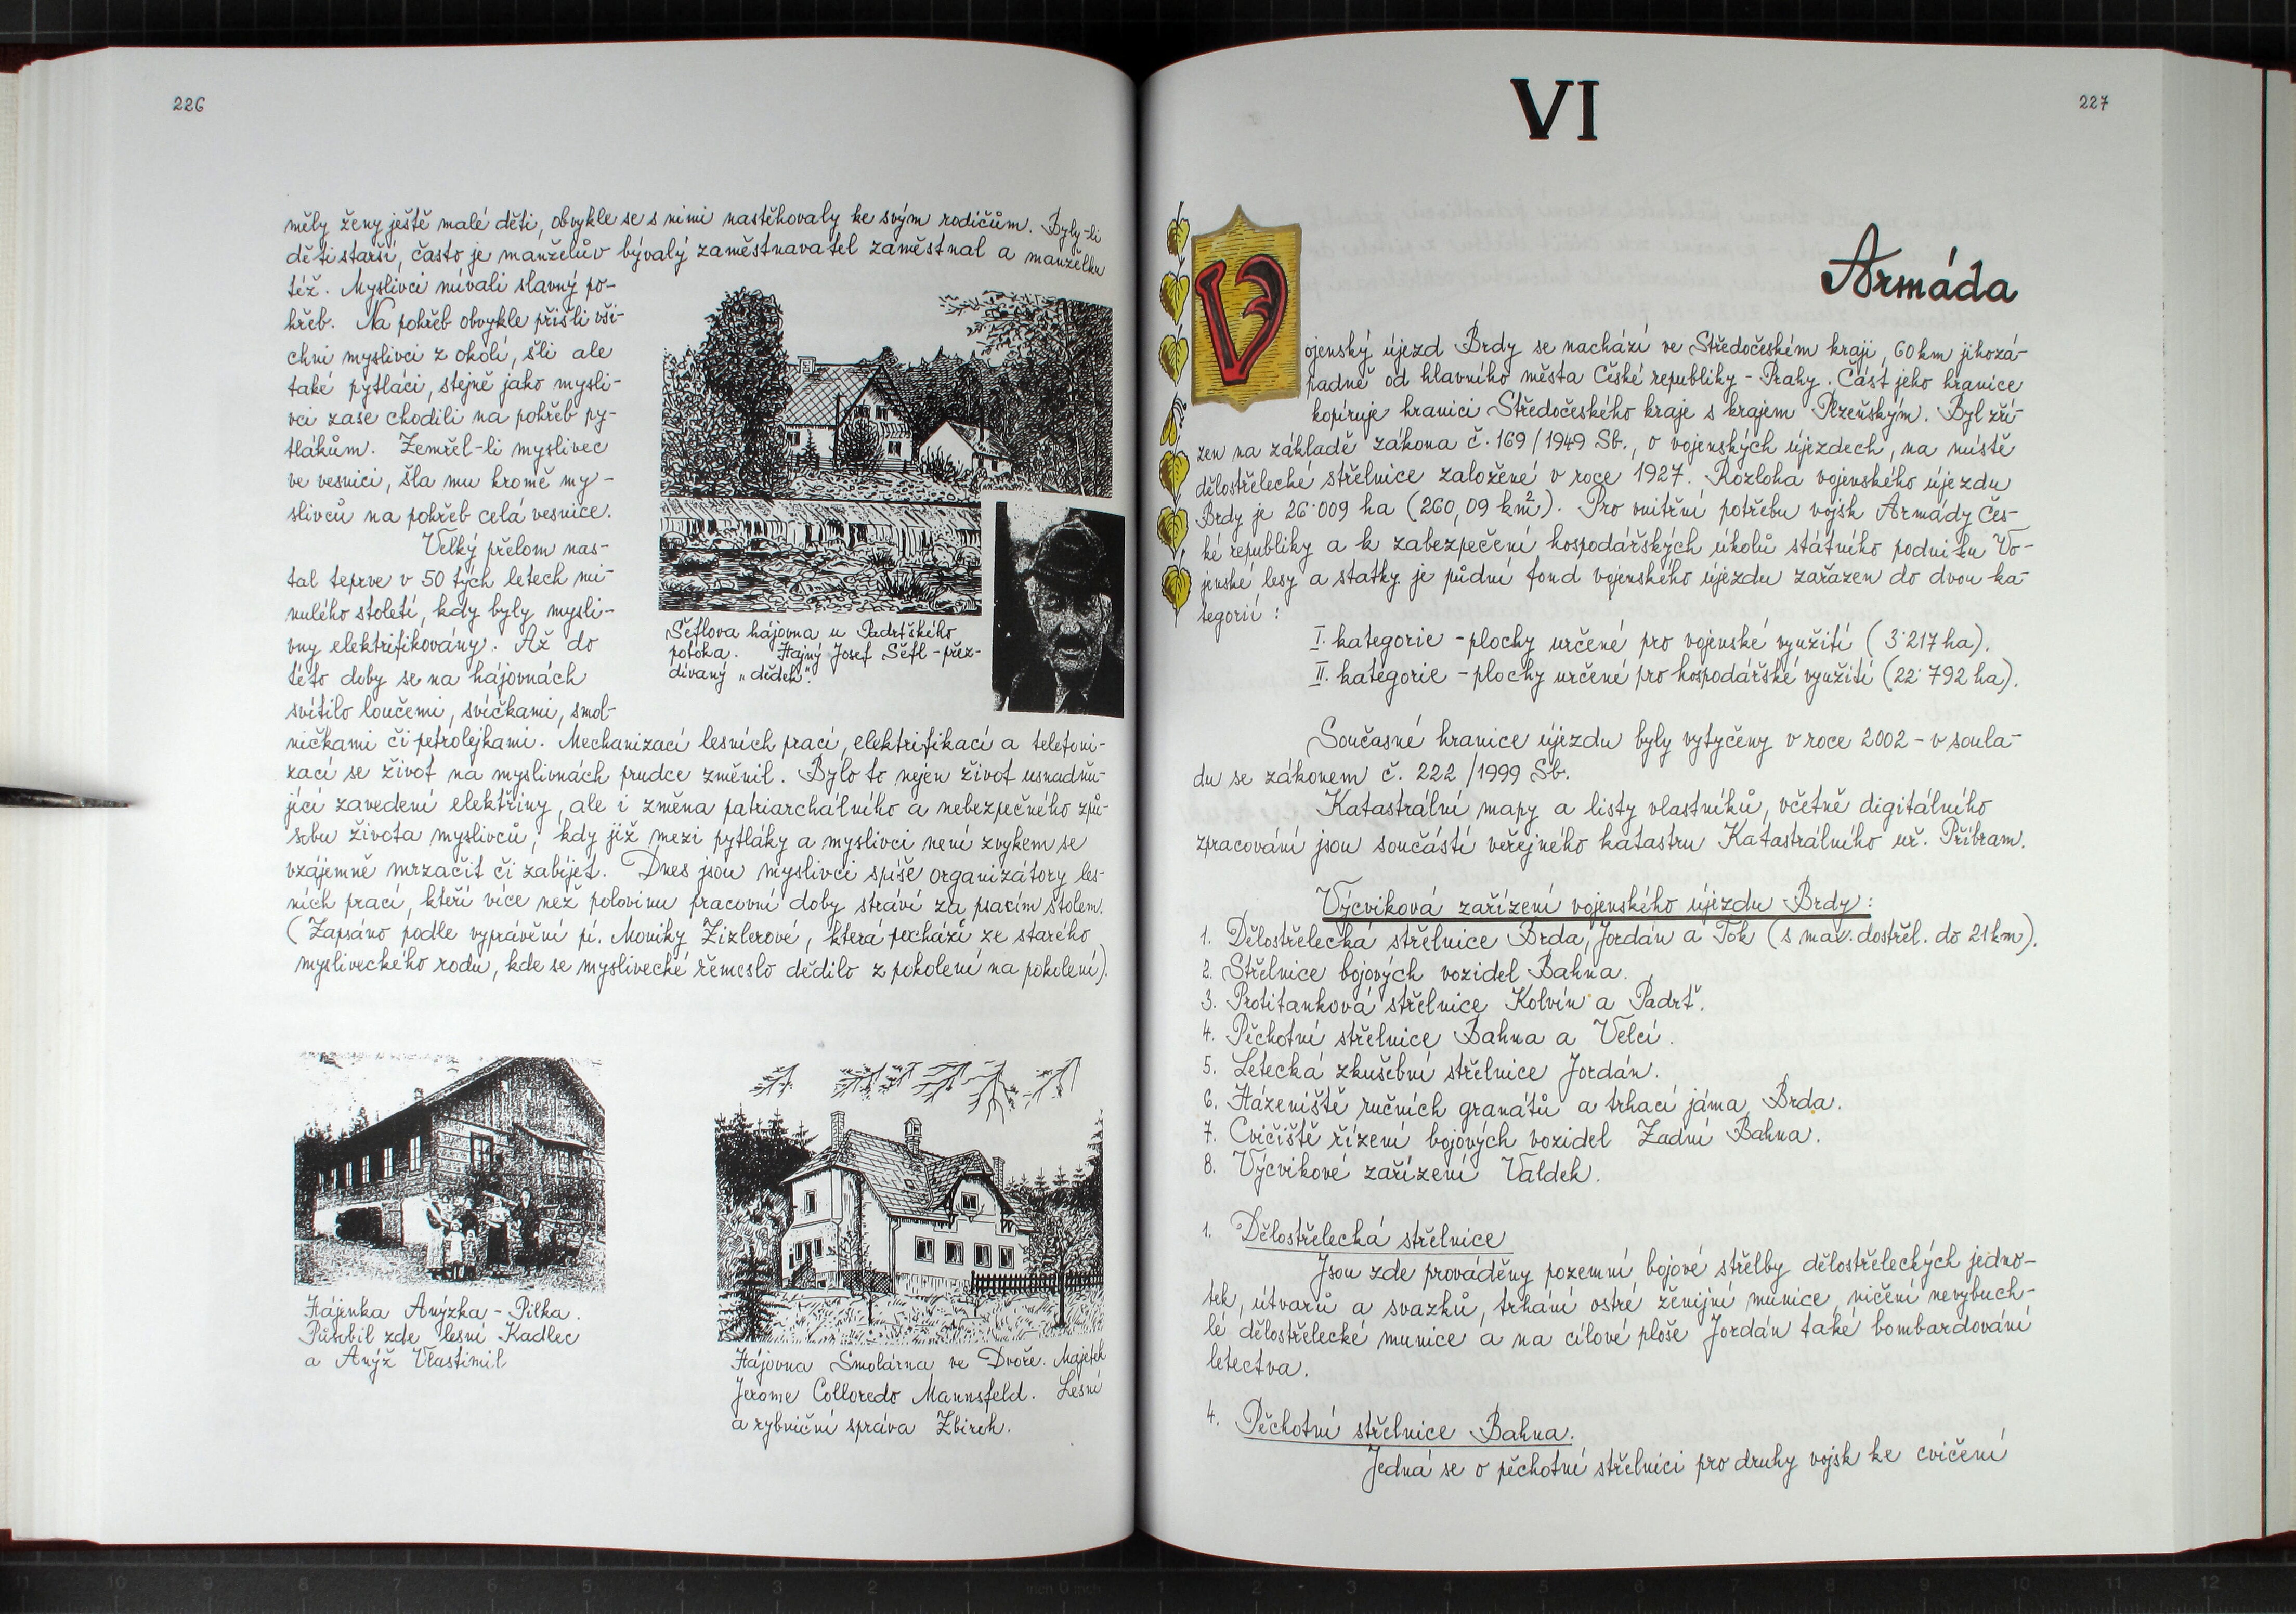 226
měly ženy ještě malé děti, obvykle se s nimi nastěhovaly ke svým rodičům. Byly-li
děti starší, často je manželův bývalý zaměstnavatel zaměstnal a manželku
též. Myslivci mívali slavný po-
hřeb. Na pohřeb obvykle přišli vši-
chni myslivci z okolí, šli ale
také pytláci, stejně jako mysli-
vci zase chodili na pohřeb py-
tlákům. Zemřel-li myslivec
ve vesnici, šla mu kromě my-
slivců na pohřeb celá vesnice.
Velký přelom nas-
tal teprve v 50 tých letech mi-
nulého století, kdy byly mysli-
vny elektrifikovány. Až do
této doby se na hájovnách
svítilo loučemi, svíčkami, smol-
ničkami či petrolejkami. Mechanizací lesních prací, elektrifikací a telefoni-
zací se život na myslivnách prudce změnil. Bylo to nejen život usnadňu-
jící zavedení elektřiny, ale i změna patriarchálního a nebezpečného způ-
sobu života myslivců, kdy již mezi pytláky a myslivci není zvykem se
vzájemně mrzačit či zabíjet. Dnes jsou myslivci spíše organizátory les-
ních prací, kteří více než polovinu pracovní doby stráví za psacím stolem.
(Zapsáno podle vyprávění pí. Moniky Zizlerové, která pochází ze starého
mysliveckého rodu, kde se myslivecké řemeslo dědilo z pokolení na pokolení).
Šeflova hájovna u Padrťského
potoka. Hajný Josef Šefl - přez-
dívaný „dědek".
Hájenka Anýzka - Pilka.
Působil zde lesní Kadlec
a Anýž Vlastimil
Hájovna Smolárna ve Dvoře. Majetek
Jerome Colloredo Mannsfeld. Lesní
a rybniční správa Zbiroh.
VI
227
Armáda
Vojenský újezd Brdy se nachází ve Středočeském kraji, 60 km jihozá-
padně od hlavního města České republiky - Prahy. Část jeho hranice
kopíruje hranici Středočeského kraje s krajem Plzeňským. Byl zří-
zen na základě zákona č. 169/1949 Sb., o vojenských újezdech, na místě
dělostřelecké střelnice založené v roce 1927. Rozloha vojenského újezdu
Brdy je 26·009 ha (260,09 km²). Pro vnitřní potřebu vojsk Armády Čes-
ké republiky a k zabezpečení hospodářských úkolů státního podniku Vo-
jenské lesy a statky je půdní fond vojenského újezdu zařazen do dvou ka-
tegorií:
I. kategorie - plochy určené pro vojenské využití (3·217 ha).
II. kategorie - plochy určené pro hospodářské využití (22·792 ha).
Současné hranice újezdu byly vytyčeny v roce 2002 - v soula-
du se zákonem č. 222/1999 Sb.
Katastrální mapy a listy vlastníků, včetně digitálního
zpracování jsou součástí veřejného katastru Katastrálního úř. Příbram.
Výcviková zařízení vojenského újezdu Brdy:
1. Dělostřelecká střelnice Brda, Jordán a Tok (s max. dostřel. do 21 km).
2. Střelnice bojových vozidel Bahna.
3. Protitanková střelnice Kolvín a Padrť.
4. Pěchotní střelnice Bahna a Velcí.
5. Letecká zkušební střelnice Jordán.
6. Házeniště ručních granátů a trhací jáma Brda.
7. Cvičiště řízení bojových vozidel Zadní Bahna.
8. Výcvikové zařízení Valdek.
1. Dělostřelecká střelnice
Jsou zde prováděny pozemní bojové střelby dělostřeleckých jedno-
tek, útvarů a svazků, trhání ostré ženijní munice, ničení nevybuch-
lé dělostřelecké munice a na cílové ploše Jordán také bombardování
letectva.
4. Pěchotní střelnice Bahna.
Jedná se o pěchotní střelnici pro druhy vojsk ke cvičení